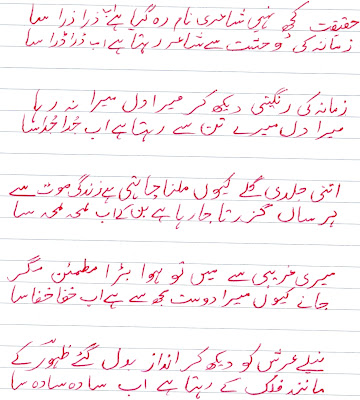 حقیقت کچھ نہیں شاعری نام رہ گیا ہے اب ذرا ذرا سا
زمانہ کی وحشت سے شاعر رہتا ہے اب ڈرا ڈرا سا
زمانہ کی رنگینی دیکھ کر میرا دل میرا نہ رہا
میرا دل میرے تن سے رہتا ہے اب جُدا جُدا سا
اتنی جلدی گلے کیوں ملنا چاہتی ہے زندگی موت سے
ہر سال گزرتا جا رہا ہے بن کے اب لمحہ لمحہ سا
میری غریبی سے میں تو ہوا بڑا مطمئن مگر
جانے کیوں میرا دوست مجھ سے ہے اب خفا خفا سا
نیلے عرش کو دیکھ کر انداز بدل گئے ظہور کے
مانند فلک کے رہتا ہے اب سادہ سادہ سا